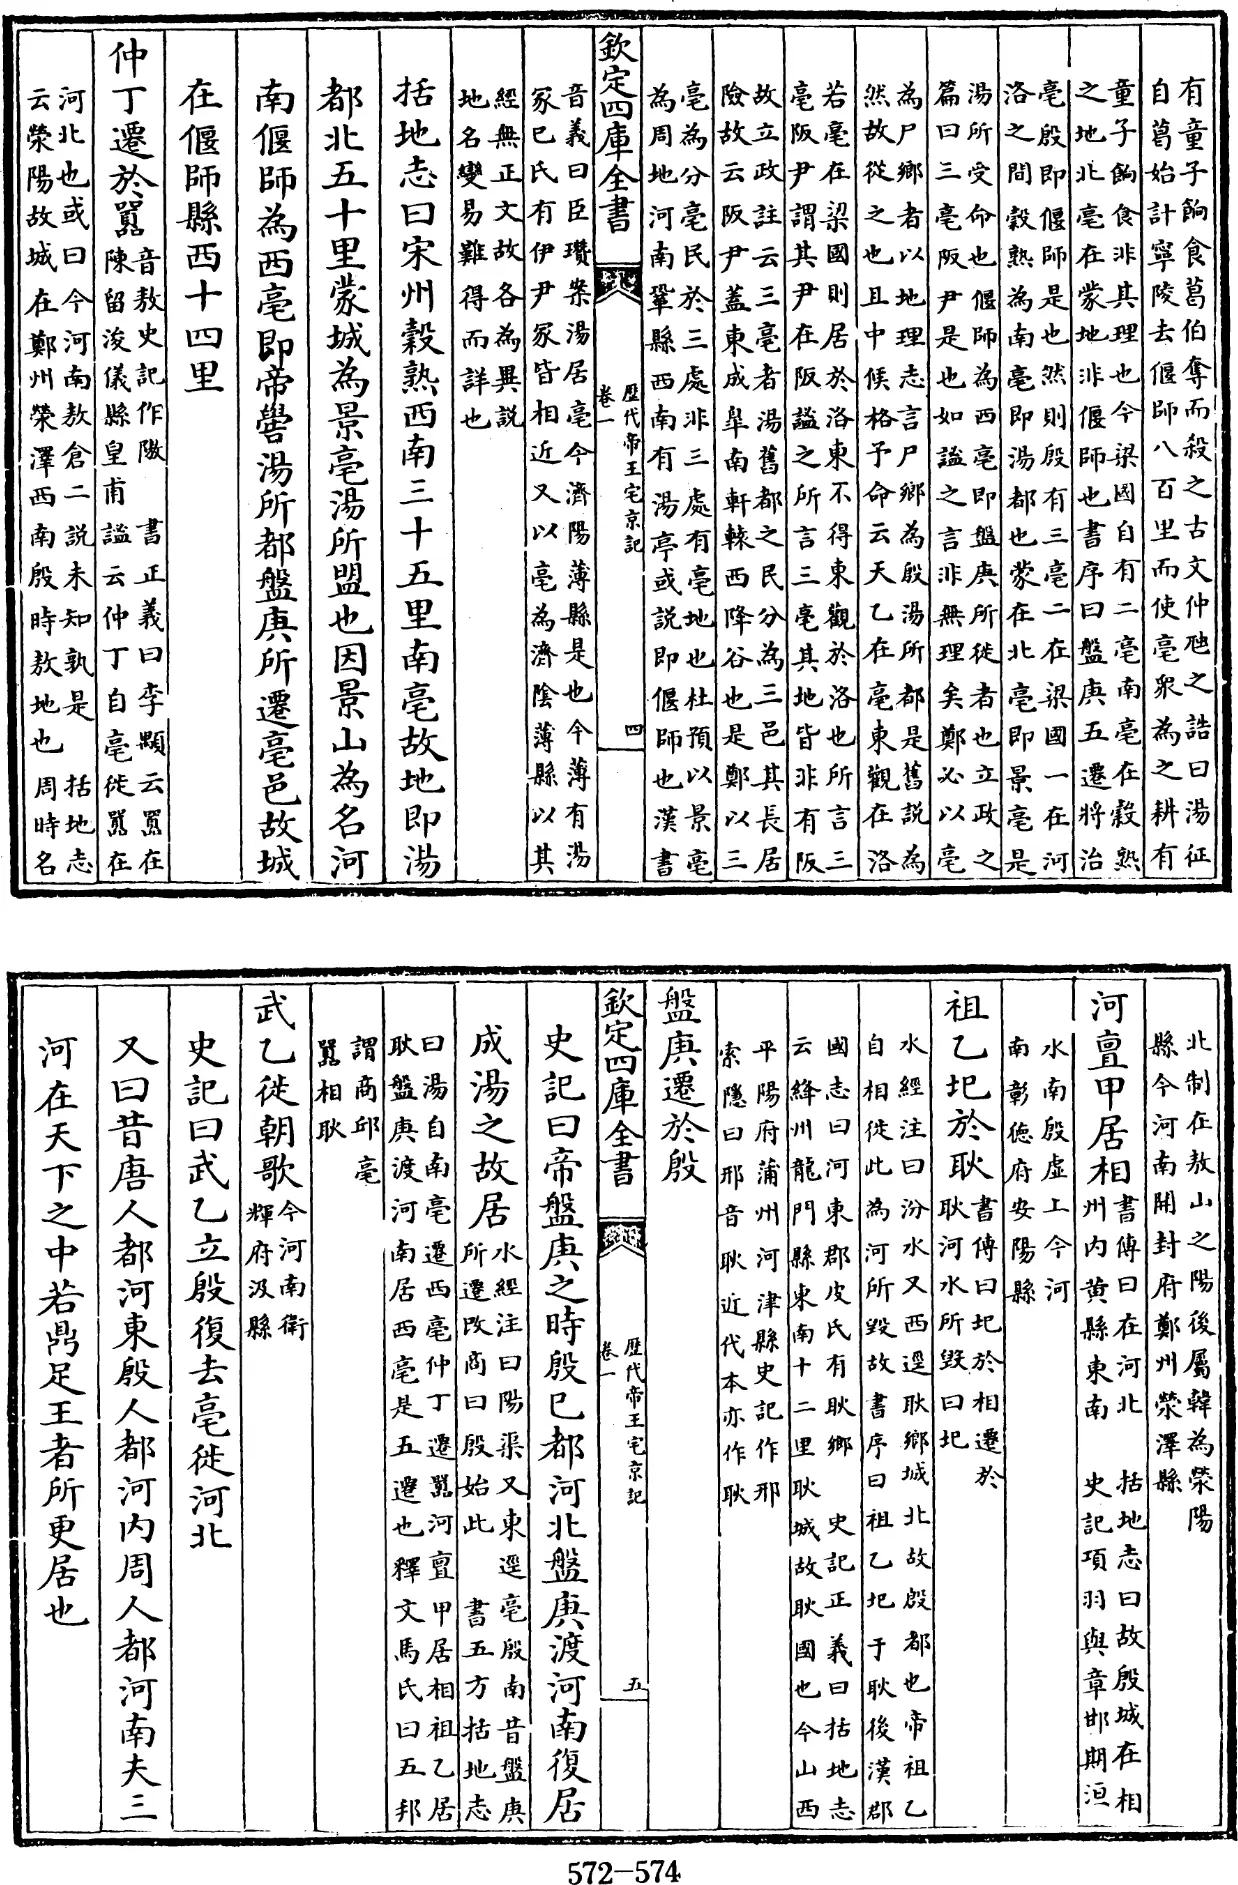 有童子餉食葛伯奪而殺之古文仲虺之誥曰湯征
自葛始計寧陵去偃師八百里而使亳衆為之耕有
童子餉食非其理也今梁國自有二亳南亳在穀熟
之地北亳在蒙地非偃師也書序曰盤庚五遷將治
亳殷即偃師是也然則殷有三亳二在梁國一在河
洛之間穀熟為南亳即湯都也蒙在北亳即景亳是
湯所受命也偃師為西亳即盤庚所徙者也立政之
篇曰三亳阪尹是也如謐之言非無理矣鄭必以亳
為尸鄉者以地理志言尸鄉為殷湯所都是舊說為
然故從之也且中候格予命云天乙在亳東觀在洛
若亳在梁國則居於洛東不得東觀於洛也所言三
亳阪尹謂其尹在阪謐之所言三亳其地皆非有阪
故立政註云三亳者湯舊都之民分為三邑其長居
險故云阪尹蓋東成臯南軒轅西降谷也是鄭以三
亳為分亳民於三處非三處有亳地也杜預以景亳
為周地河南鞏縣西南有湯亭或說即偃師也漢書
欽定四庫全書
歷代帝王宅京記
卷一
四
音義曰臣瓚案湯居亳今濟陽薄縣是也今薄有湯
冢已氏有伊尹冢皆相近又以亳為濟陰薄縣以其
經無正文故各為異說
地名變易難得而詳也
括地志曰宋州穀熟西南三十五里南亳故地即湯
都北五十里蒙城為景亳湯所盟也因景山為名河
南偃師為西亳即帝嚳湯所都盤庚所遷亳邑故城
在偃師縣西十四里
仲丁遷於囂
音敖史記作隞　書正義曰李顒云囂在
陳留浚儀縣皇甫謐云仲丁自亳徙囂在
河北也或曰今河南敖倉二說未知孰是　括地志
云滎陽故城在鄭州滎澤西南殷時敖地也　周時名
北制在敖山之陽後屬韓為滎陽
縣今河南開封府鄭州滎澤縣
河亶甲居相
書傳曰在河北　括地志曰故殷城在相
州內黄縣東南　史記項羽與章邯期洹
水南殷虛上今河
南彰德府安陽縣
祖乙圯於耿
書傳曰圯於相遷於
耿河水所毀曰圯
水經注曰汾水又西逕耿鄉城北故殷都也帝祖乙
自相徙此為河所毀故書序曰祖乙圯于耿後漢郡
國志曰河東郡皮氏有耿鄉　史記正義曰括地志
云絳州龍門縣東南十二里耿城故耿國也今山西
平陽府蒲州河津縣史記作邢
索隱曰邢音耿近代本亦作耿
盤庚遷於殷
欽定四庫全書
歷代帝王宅京記
卷一
五
史記曰帝盤庚之時殷已都河北盤庚渡河南復居
成湯之故居
水經注曰陽渠又東逕亳殷南昔盤庚
所遷改商曰殷始此　書五方括地志
曰湯自南亳遷西亳仲丁遷囂河亶甲居相祖乙居
耿盤庚渡河南居西亳是五遷也釋文馬氏曰五邦
謂商邱亳
囂相耿
武乙徙朝歌
今河南衛
輝府汲縣
史記曰武乙立殷復去亳徙河北
又曰昔唐人都河東殷人都河內周人都河南夫三
河在天下之中若鼎足王者所更居也
572-574